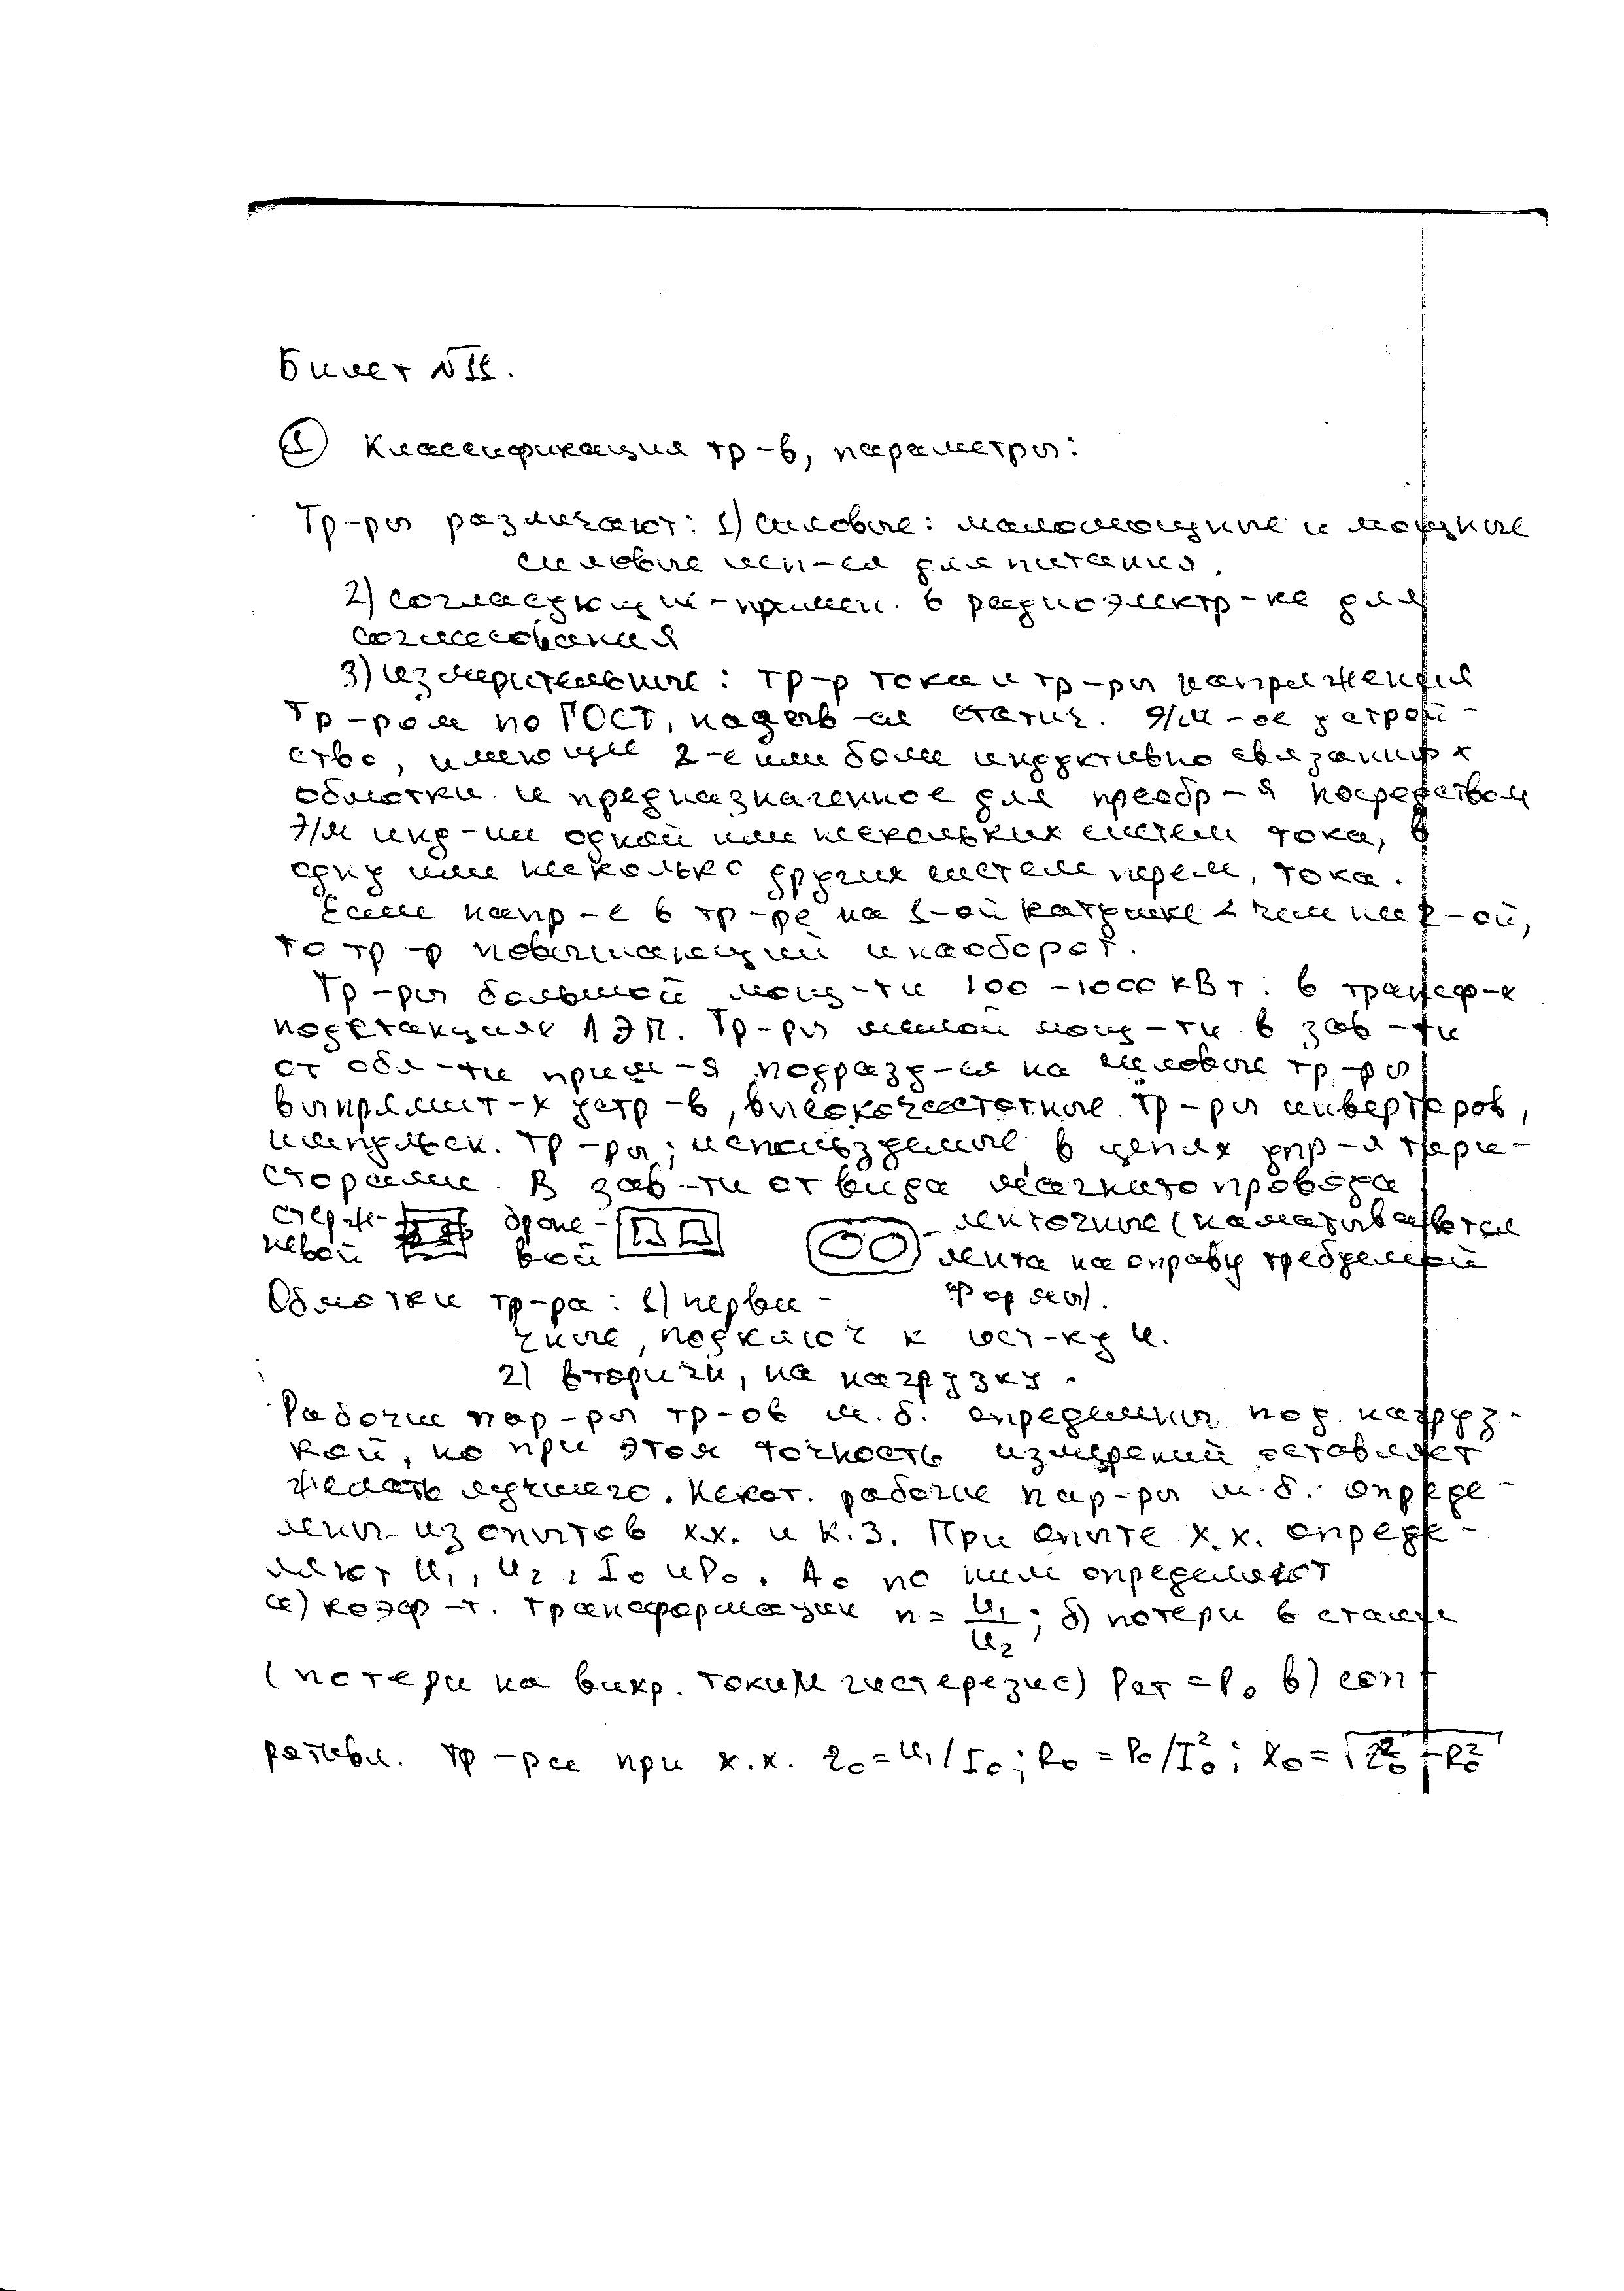 Билет №11.
① Классификация тр-в, параметры:
Тр-ры различают: 1) силовые: маломощные и мощные
силовые исп-ся для питания.
2) согласующие - примен. в радиоэлектр-ке для
согласования
3) измерительные: тр-р тока и тр-ры напряжения
Тр-ром по ГОСТ, назыв-ся статич. э/м-ое устрой-
ство, имеющее 2-е или более индуктивно связанных
обмотки и предназначенное для преобр-я посредством
э/м инд-ии одной или нескольких систем тока, в
одну или несколько других систем перем. тока.
Если напр-е в тр-ре на 1-ой катушке < чем на 2-ой,
то тр-р повышающий и наоборот.
Тр-ры большой мощ-ти 100-1000 кВт: в трансф-х
подстанциях ЛЭП. Тр-ры малой мощ-ти в зав-ти
от обл-ти прим-я подразд-ся на силовые тр-ры
выпрямит-х устр-в, высокочастотные тр-ры инверторов,
импульсн. тр-ры, используемые в цепях упр-я тири-
сторами. В зав-ти от вида магнитопровода
стерж-
невой
броне-
вой
- ленточные (наматывается
лента на оправу требуемой
формы).
Обмотки тр-ра: 1) перви-
чные, подключ к ист-ку U.
2) вторичн, на нагрузку.
Рабочие пар-ры тр-ов м.б. определены под нагруз-
кой, но при этом точность измерений оставляет
желать лучшего. Некот. рабочие пар-ры м.б. опреде-
лены из опытов х.х. и к.з. При опыте х.х. опреде-
ляют U₁, U₂, I₀ и P₀. А по ним определяют
а) коэф-т. трансформации n = U₁/U₂; б) потери в стали
(потери на вихр. токи и гистерезис) Pст = P₀ в) соп
ративл. тр-ра при х.х. z₀ = U₁/I₀; R₀ = P₀/I₀²; X₀ = √(z₀² - R₀²)